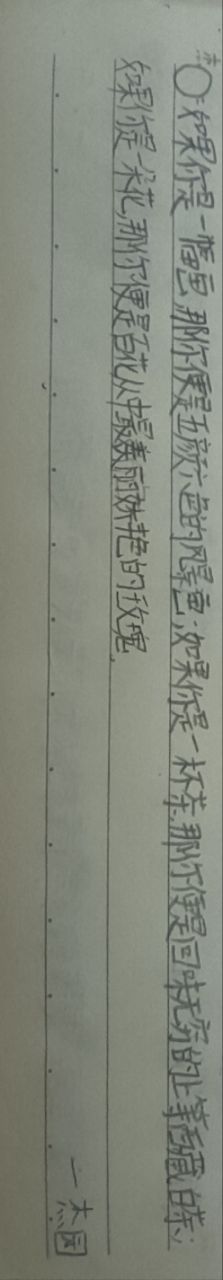 如果你是一幅画，那你便是五颜六色的风景画；如果你是一杯茶，那你便是回味无穷的上等西藏白茶；
如果你是一朵花，那你便是百花丛中最美丽妖艳的玫瑰，